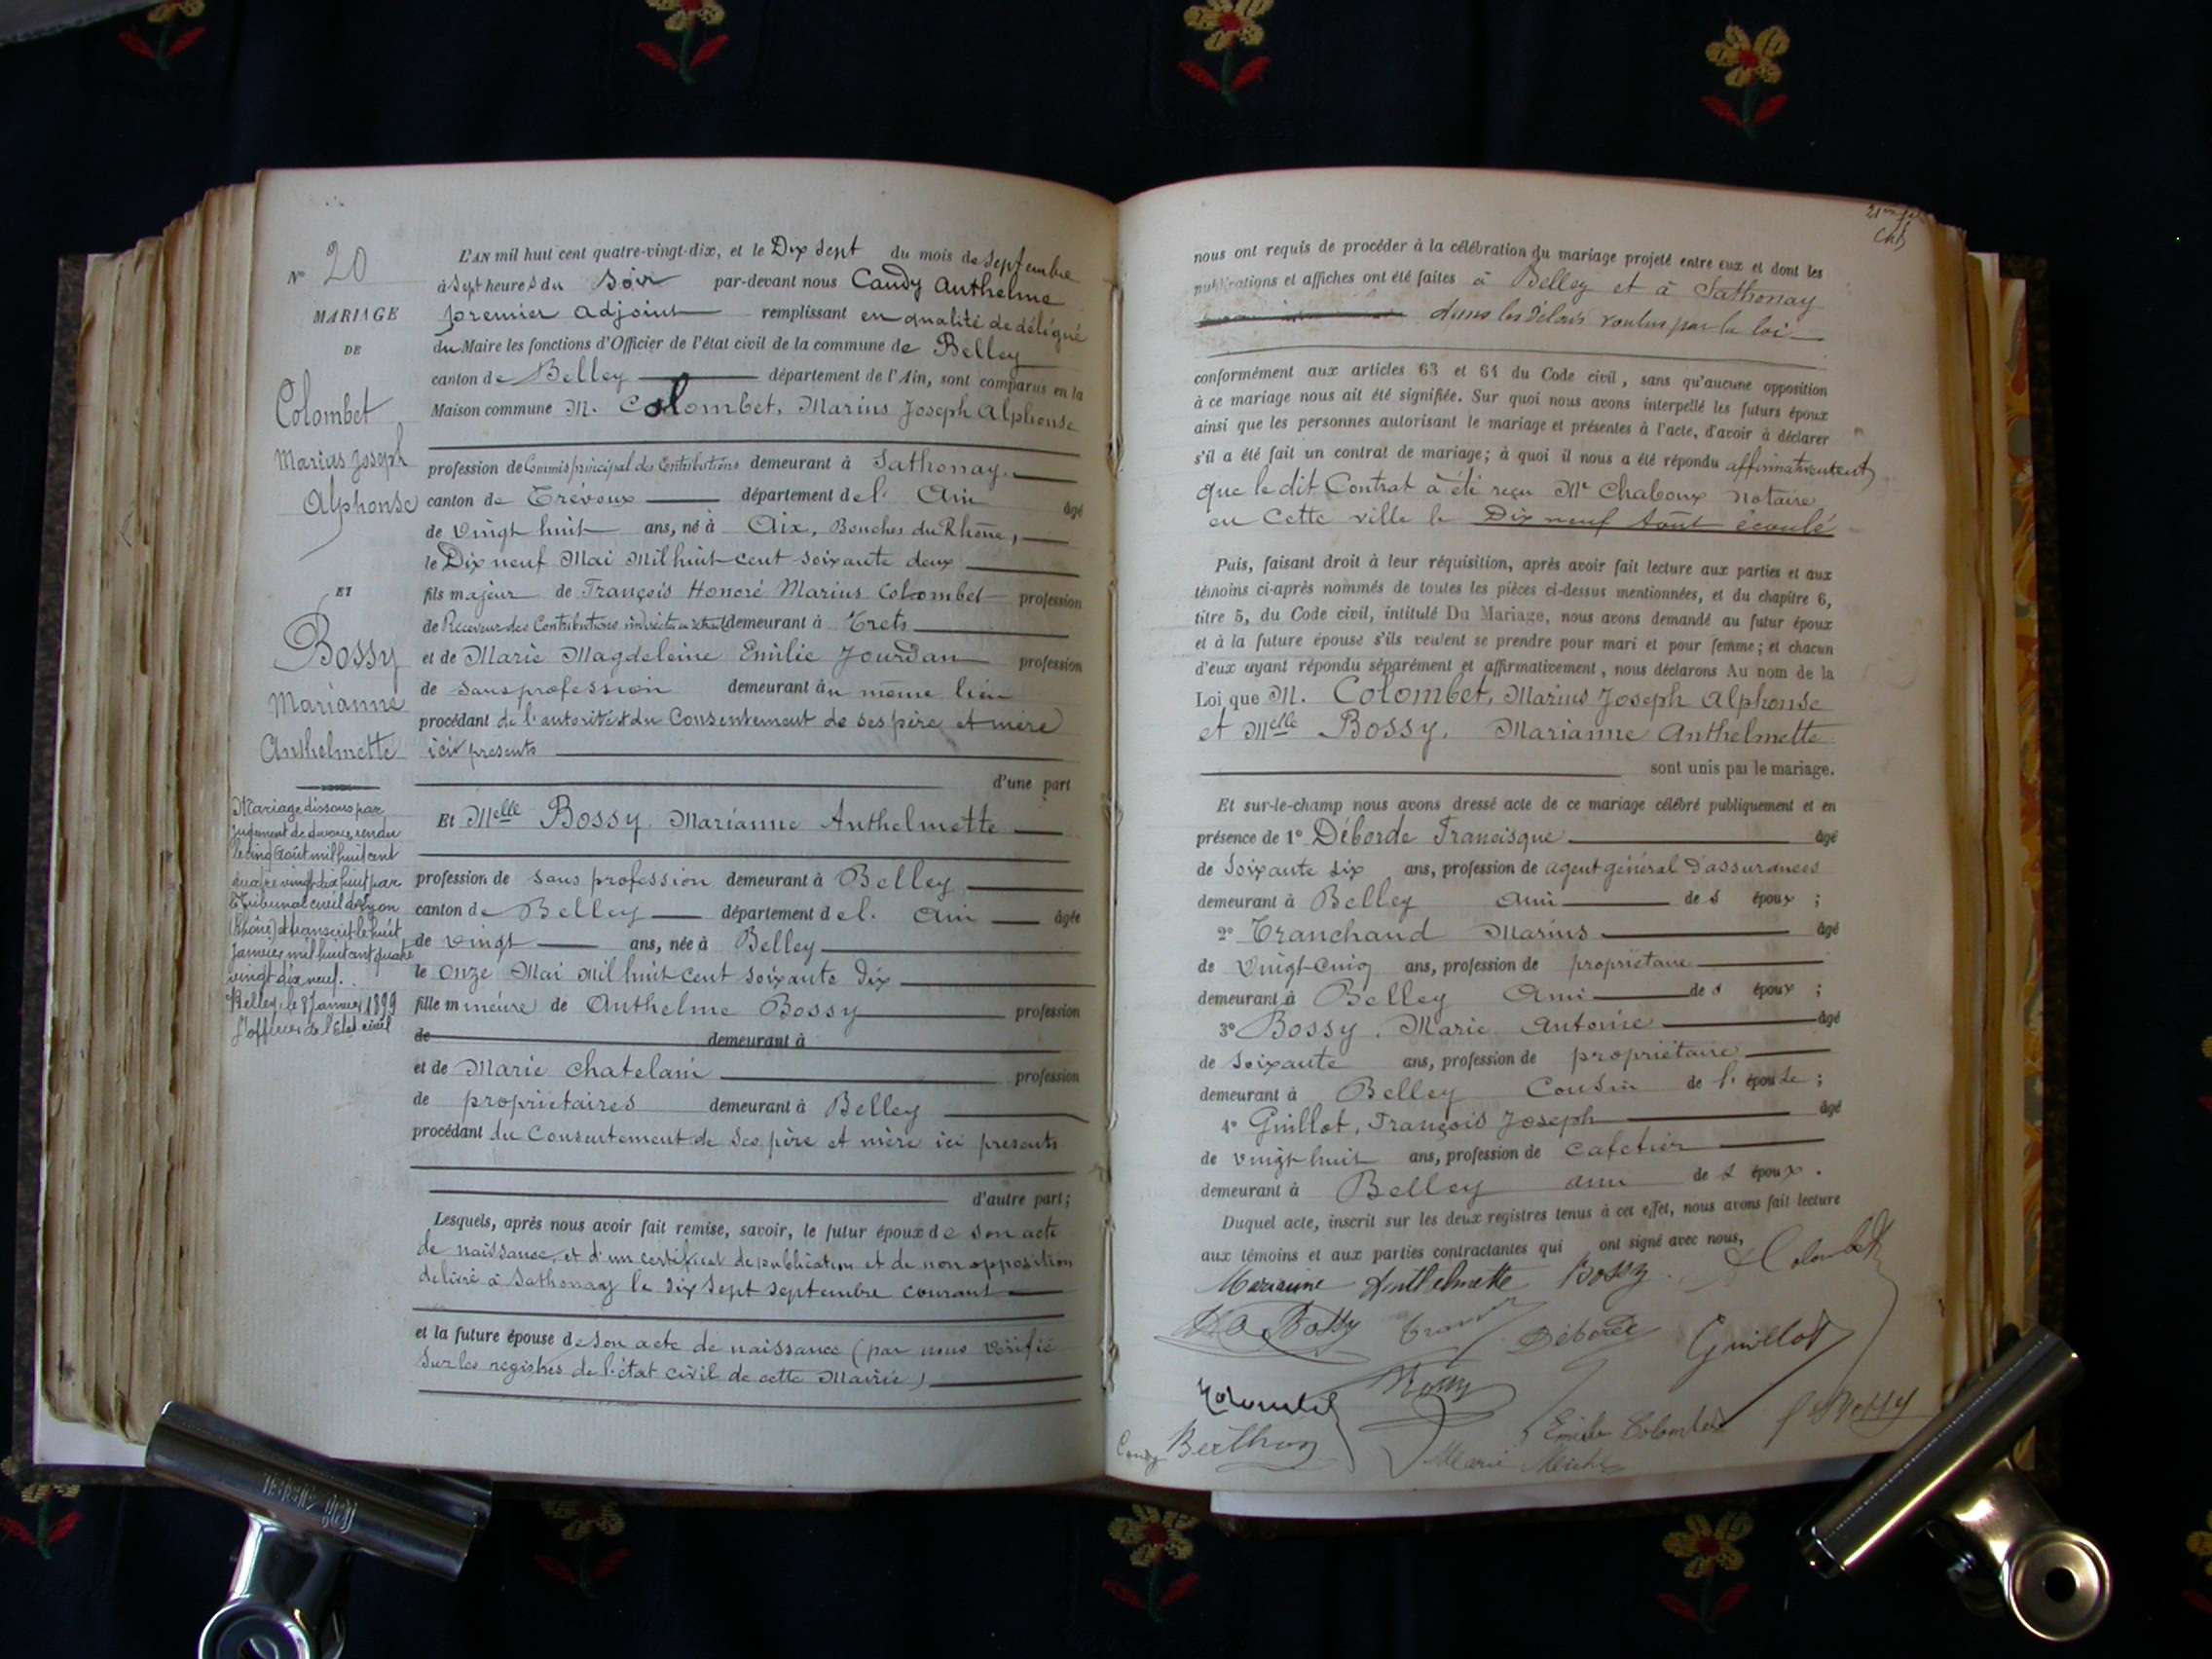 N° 20
MARIAGE
DE
Colombet
Marius Joseph
Alphonse
ET
Bossy
Marianne
Anthelmette
Mariage dissous par
jugement de divorce rendu
le cinq Août mil huit cent
quatre vingt dix huit par
le Tribunal civil de Lyon
(Rhône) et transcrit le huit
Janvier mil huit cent quatre
vingt dix neuf.
Belley, le 8 Janvier 1899
L'officier de l'Etat civil
L'AN mil huit cent quatre-vingt-dix, et le Dix Sept du mois de Septembre
à Sept heures du Soir par-devant nous Candy Anthelme
premier adjoint remplissant en qualité de délégué
du Maire les fonctions d'Officier de l'état civil de la commune de Belley
canton de Belley département de l'Ain, sont comparus en la
Maison commune M. Colombet, Marius Joseph Alphonse
profession de Commis principal des Contributions demeurant à Sathonay
canton de Trévoux département de l' Ain âgé
de Vingt huit ans, né à Aix, Bouches du Rhône,
le Dix neuf Mai Mil huit cent soixante deux
fils majeur de François Honoré Marius Colombet profession
de Receveur des Contributions indirectes demeurant à Trets
et de Marie Magdeleine Emilie Jourdan profession
de sans profession demeurant au même lieu
procédant de l'autorité et du Consentement de ses père et mère
ici présents
d'une part
Et Melle Bossy Marianne Anthelmette
profession de sans profession demeurant à Belley
canton de Belley département de l' Ain âgée
de vingt ans, née à Belley
le onze Mai Mil huit cent soixante dix
fille mineure de Anthelme Bossy profession
de demeurant à
et de Marie Chatelain profession
de propriétaires demeurant à Belley
procédant du Consentement de Ses père et mère ici présents
d'autre part;
Lesquels, après nous avoir fait remise, savoir, le futur époux de son acte
de naissance, et d'un certificat de publication et de non opposition
délivré à Sathonay le dix Sept Septembre courant
et la future épouse de son acte de naissance (par nous vérifié
Sur les registres de l'état civil de cette Mairie)
nous ont requis de procéder à la célébration du mariage projeté entre eux et dont les
publications et affiches ont été faites à Belley et à Sathonay
dans les délais voulus par la loi
conformément aux articles 63 et 64 du Code civil, sans qu'aucune opposition
à ce mariage nous ait été signifiée. Sur quoi nous avons interpellé les futurs époux
ainsi que les personnes autorisant le mariage et présentes à l'acte, d'avoir à déclarer
s'il a été fait un contrat de mariage; à quoi il nous a été répondu affirmativement
que le dit Contrat a été reçu Me Chaboux notaire
en Cette ville le Dix neuf Août écoulé
Puis, faisant droit à leur réquisition, après avoir fait lecture aux parties et aux
témoins ci-après nommés de toutes les pièces ci-dessus mentionnées, et du chapitre 6,
titre 5, du Code civil, intitulé Du Mariage, nous avons demandé au futur époux
et à la future épouse s'ils veulent se prendre pour mari et pour femme; et chacun
d'eux ayant répondu séparément et affirmativement, nous déclarons Au nom de la
Loi que M. Colombet, Marius Joseph Alphonse
et Melle Bossy, Marianne Anthelmette
sont unis par le mariage.
Et sur-le-champ nous avons dressé acte de ce mariage célébré publiquement et en
présence de 1° Déborde Francisque âgé
de Soixante six ans, profession de agent général d'assurances
demeurant à Belley Ami des époux;
2° Tranchand Marius âgé
de Vingt Cinq ans, profession de propriétaire
demeurant à Belley Ami des époux;
3° Bossy, Marie Antoine âgé
de Soixante ans, profession de propriétaire
demeurant à Belley Cousin de l'épouse;
4° Guillot, François Joseph âgé
de vingt huit ans, profession de Cafetier
demeurant à Belley ami des époux.
Duquel acte, inscrit sur les deux registres tenus à cet effet, nous avons fait lecture
aux témoins et aux parties contractantes qui ont signé avec nous,
Marianne Anthelmette Bossy Colombet
Bossy Déborde Guillot
Colombet Bossy
Emilie Colombet Bossy
Candy Berthon Marie